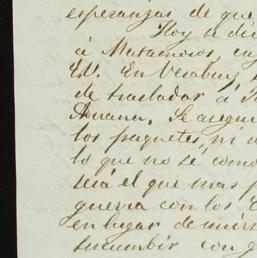 esperanzas de que
Hoy se di
á Matamoros, en
E.V. En Veracruz
de trasladar á
Aduana. Se asegu
los paquetes, ni
lo que no sé como
será el que mas p
guerra con los E
en lugar de unir
sucumbir con g